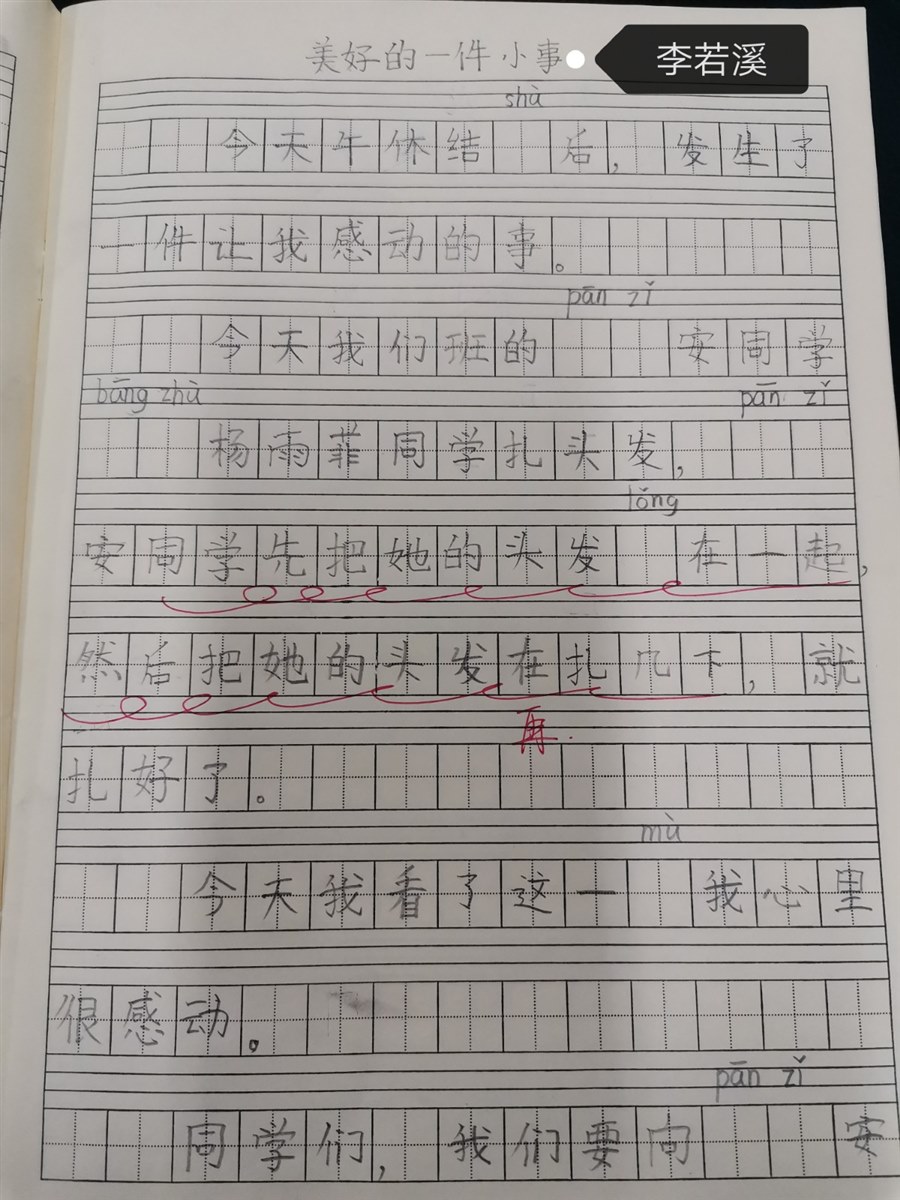 美好的一件小事
李若溪
shù
今天午休结 后，发生了
一件让我感动的事。
pān zǐ
今天我们班的 安同学
bāng zhù pān zǐ
杨雨菲同学扎头发，
lǒng
安同学先把她的头发 在一起，
然后把她的头发在扎几下，就
再
扎好了。
mù
今天我看了这一 我心里
很感动。
pān zǐ
同学们，我们要向 安